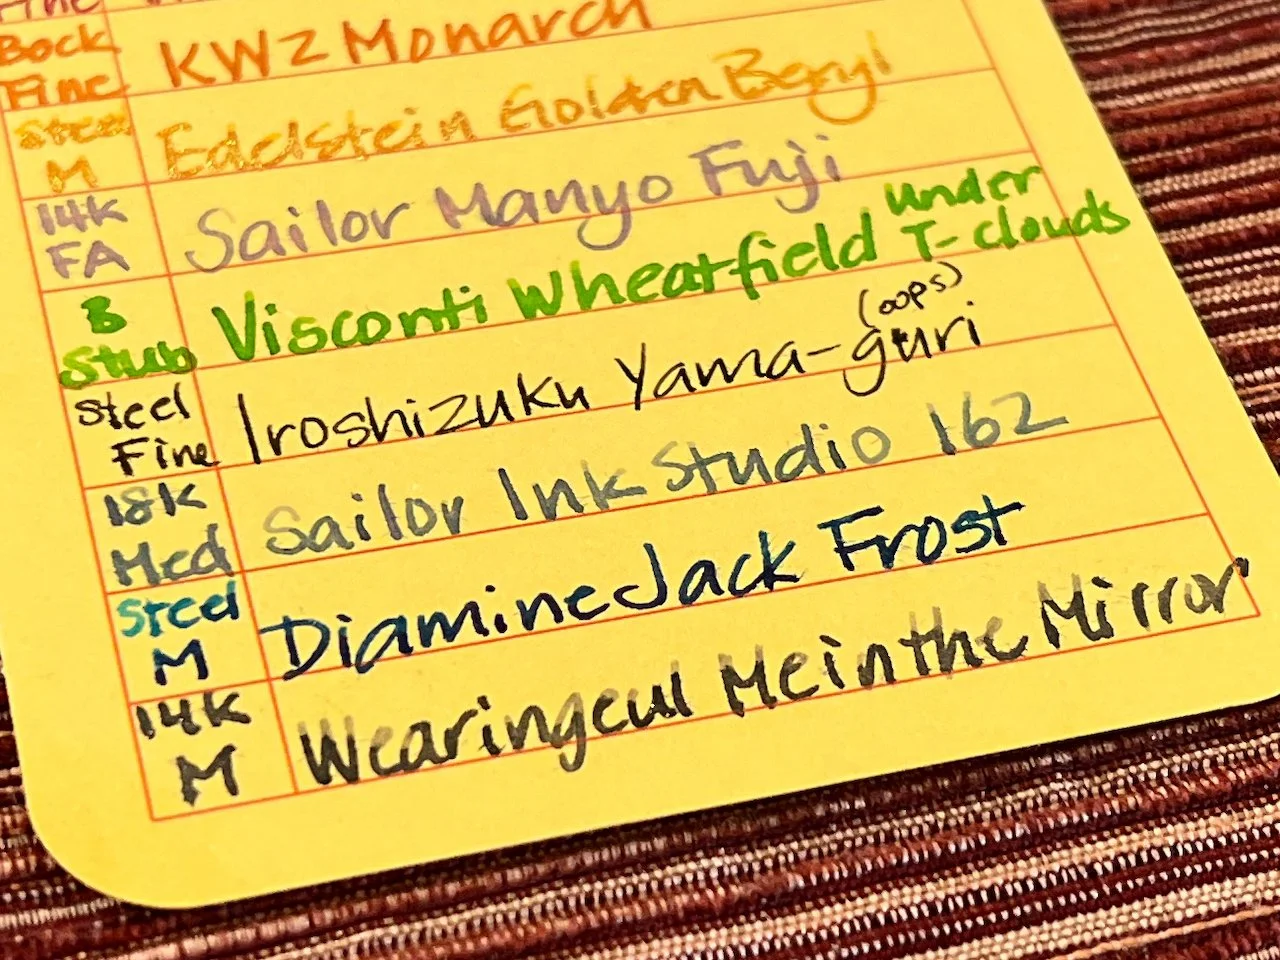 Fine
Bock Fine KWZ Monarch
Steel M Edelstein Golden Beryl
14K FA Sailor Manyo Fuji
B Stub Visconti Wheatfield under T-clouds
Steel Fine Iroshizuku Yama-guri (oops)
18K Med Sailor Ink Studio 162
Steel M Diamine Jack Frost
14K M Wearingeul Me in the Mirror